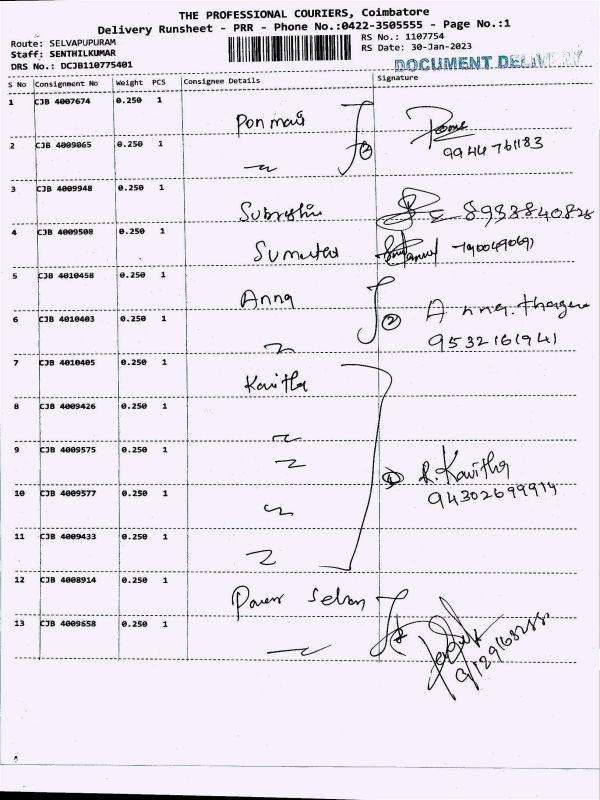 THE PROFESSIONAL COURIERS, Coimbatore
Delivery Runsheet - PRR - Phone No.:0422-3505555 - Page No.:1
Route: SELVAPUPURAM
RS No.: 1107754
Staff: SENTHILKUMAR
RS Date: 30-Jan-2023
DRS No.: DCJB110775401
DOCUMENT DELIVERY
S No Consignment No Weight PCS Consignee Details Signature
1 CJB 4007674 0.250 1
Pon mari
9944761183
2 CJB 4009065 0.250 1
2
3 CJB 4009948 0.250 1
4 CJB 4009508 0.250 1
5 CJB 4010458 0.250 1 Anna
6 CJB 4010403 0.250 1 2
9532161941
7 CJB 4010405 0.250 1 Kavitha
8 CJB 4009426 0.250 1
9 CJB 4009575 0.250 1 R. Kavitha
10 CJB 4009577 0.250 1 94302699914
11 CJB 4009433 0.250 1
12 CJB 4008914 0.250 1
Selvan
13 CJB 4009658 0.250 1